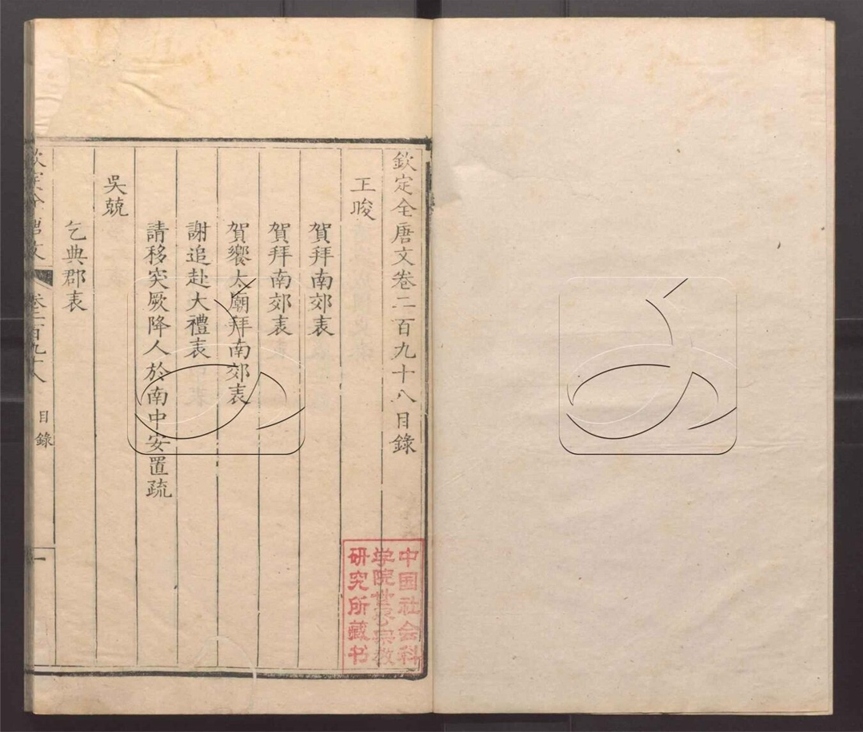 欽定全唐文卷二百九十八目錄
王晙
賀拜南郊表
賀拜南郊表
賀饗太廟拜南郊表
謝追赴大禮表
請移突厥降人於南中安置疏
吳兢
乞典郡表
欽定全唐文
卷二百九十八
目錄
一
中国社会科
学院世界宗教
研究所藏书